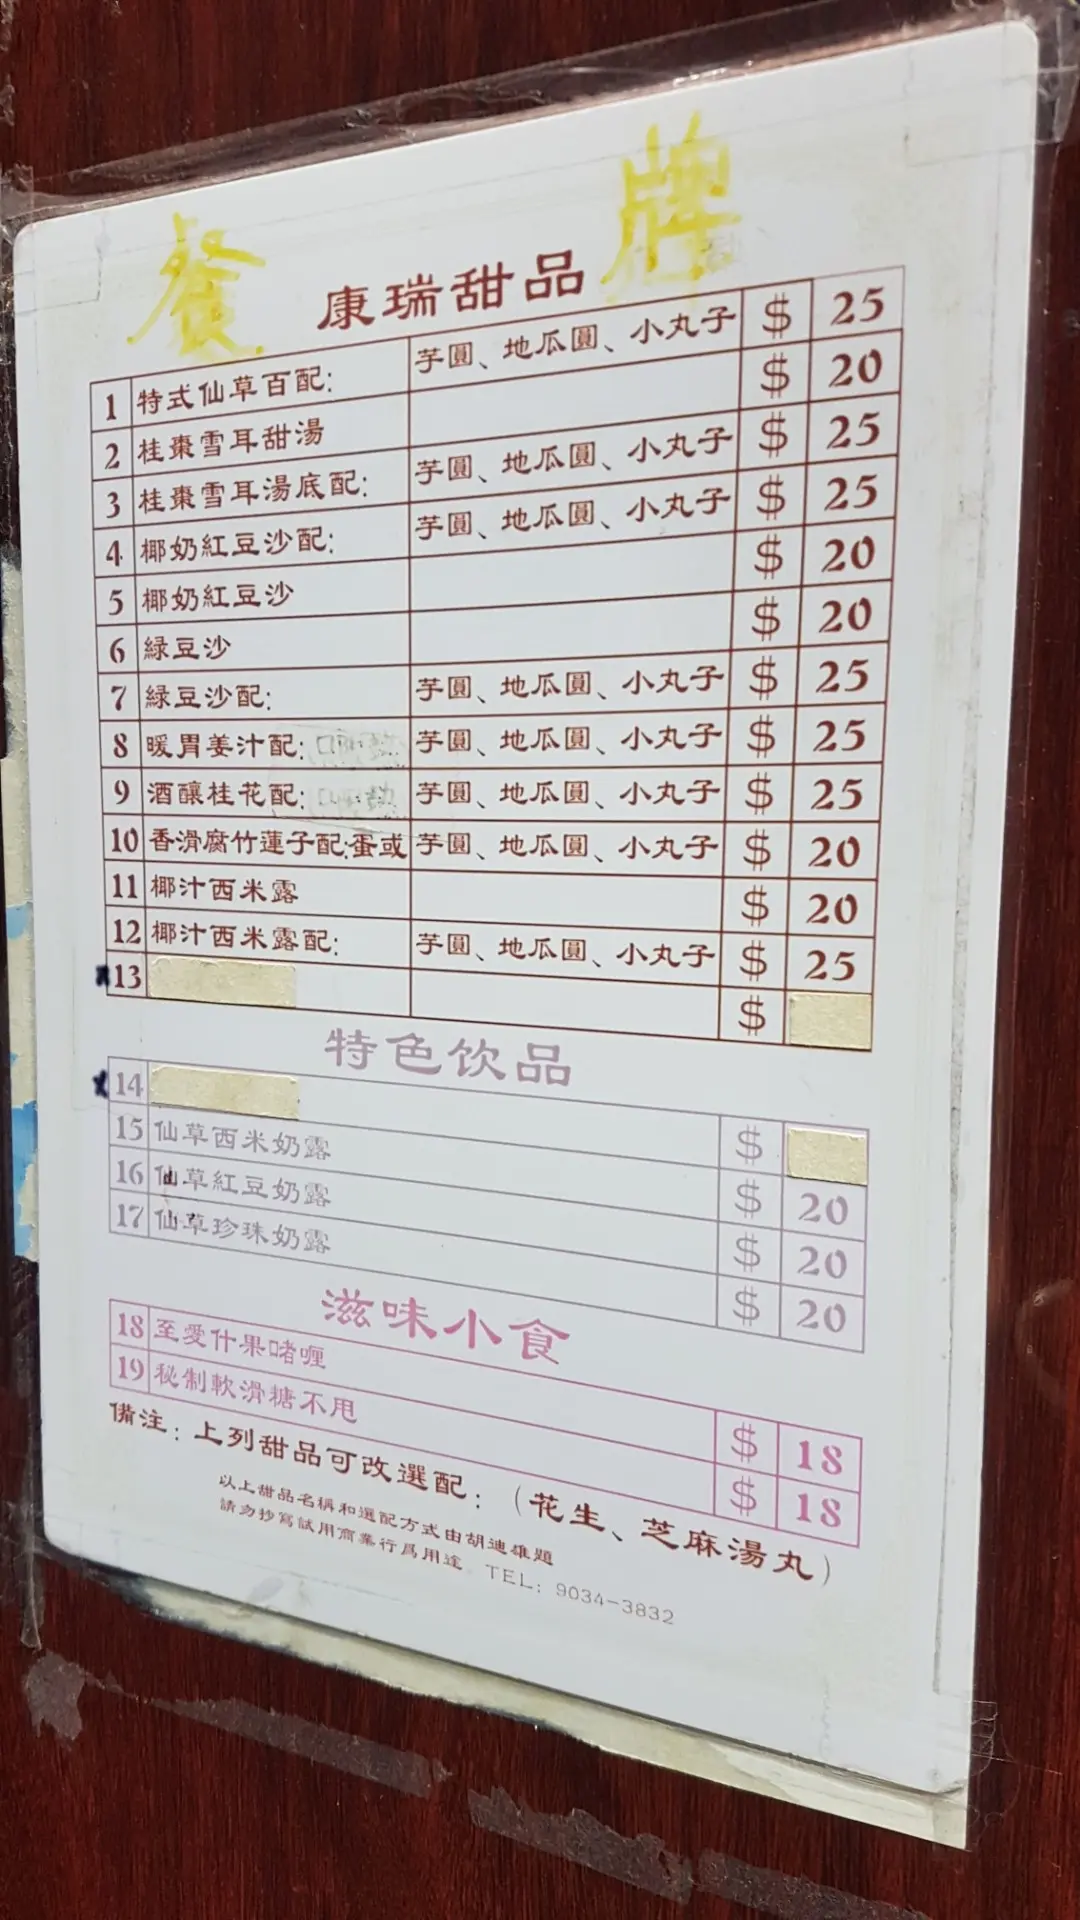 餐牌
康瑞甜品
1 特式仙草百配: 芋圓、地瓜圓、小丸子 $ 25
2 桂棗雪耳甜湯 $ 20
3 桂棗雪耳湯底配: 芋圓、地瓜圓、小丸子 $ 25
4 椰奶紅豆沙配: 芋圓、地瓜圓、小丸子 $ 25
5 椰奶紅豆沙 $ 20
6 綠豆沙 $ 20
7 綠豆沙配: 芋圓、地瓜圓、小丸子 $ 25
8 暖胃姜汁配: 芋圓、地瓜圓、小丸子 $ 25
9 酒釀桂花配: 芋圓、地瓜圓、小丸子 $ 25
10 香滑腐竹蓮子配:蛋或 芋圓、地瓜圓、小丸子 $ 20
11 椰汁西米露 $ 20
12 椰汁西米露配: 芋圓、地瓜圓、小丸子 $ 25
13 $
特色饮品
14 $
15 仙草西米奶露 $ 20
16 仙草紅豆奶露 $ 20
17 仙草珍珠奶露 $ 20
滋味小食
18 至愛什果啫喱 $ 18
19 秘制軟滑糖不甩 $ 18
備注：上列甜品可改選配：（花生、芝麻湯丸）
以上甜品名稱和選配方式由胡迪雄題
請勿抄寫試用商業行爲用途 TEL: 9034-3832